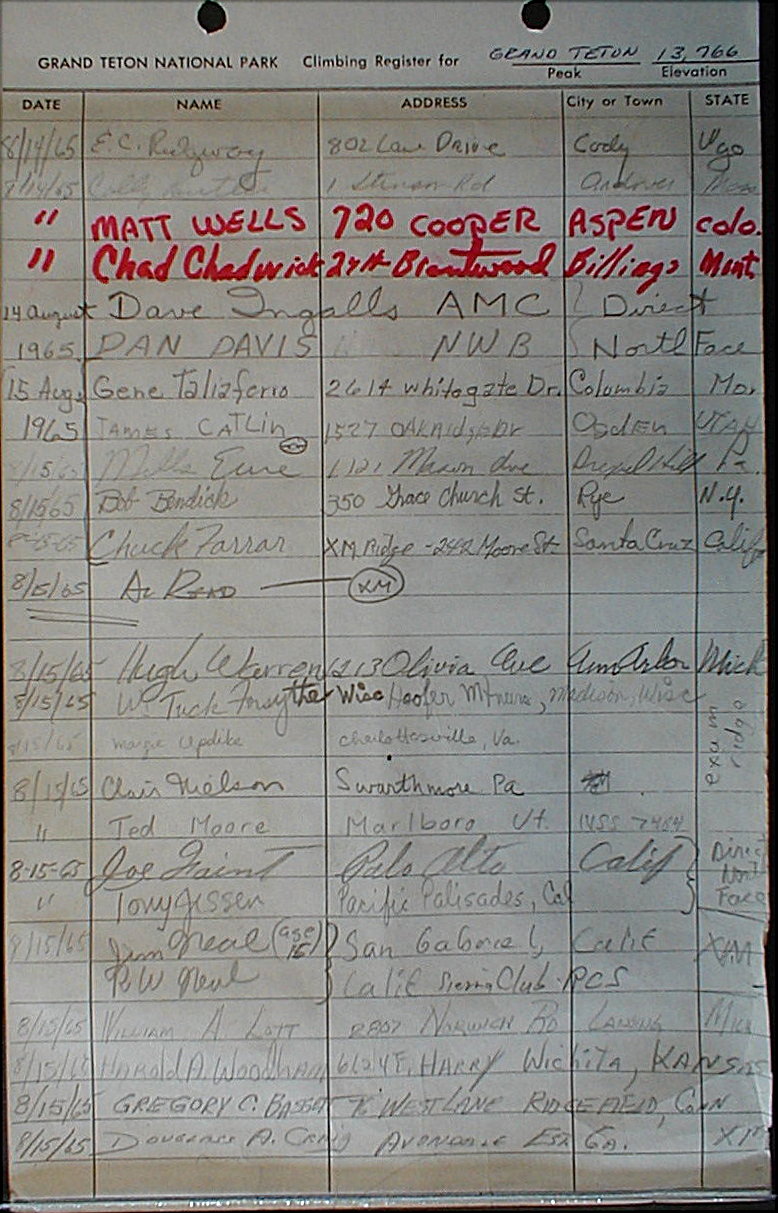 GRAND TETON NATIONAL PARK Climbing Register for GRAND TETON 13,766
Peak Elevation
DATE NAME ADDRESS City or Town STATE
8/14/65 E.C. Ridgway 802 Lane Drive Cody Wyo
8/14/65 1 Rd Andover Mass
" MATT WELLS 720 COOPER ASPEN colo.
" Chad Chadwick Brentwood Billings Mont.
14 August Dave Ingalls AMC Direct
1965 DAN DAVIS NWB North Face
15 Aug. Gene Taliaferro 2614 Whitegate Dr. Columbia Mo.
1965 JAMES CATLIN 1527 OAKRidge Dr Ogden UTAH
8/15/65 Mills Drexel Hill Pa.
8/15 65 Bob Bendick 350 Grace Church St. Rye N.Y.
8-15-65 Chuck Farrar XM Ridge - 2442 Moore St Santa Cruz Calif
8/15/65 AL READ XM
8/15/65 Hugh Warren 1213 Olivia Ave Ann Arbor Mich
8/15/65 Wm Tuck Forsythe Wisc Hoofer Mtneers, Madison, Wisc
8/15/65 margie Updike charlottesville, Va.
exum ridge
8/15/65 Clair Nielson Swarthmore Pa
" Ted Moore Marlboro Vt.
8-15-65 Joe Faint Palo Alto Calif } Direct North Face
" Tony Jessen Pacific Palisades, Cal
8/15/65 Jim Neal (age 15) } San Gabriel, Calif XM
R W Neal Calif Sierra Club - RCS
8/15/65 WILLIAM A LOTT NORWICH RD LANSING Mich
8/15/65 HAROLD A. Woodham HARRY Wichita, KANSAS
8/15/65 GREGORY C. BASSET WEST LANE RIDGEFIELD, CONN
8/15/65 Douglass A. Craig AVONDALE EST. GA. XM